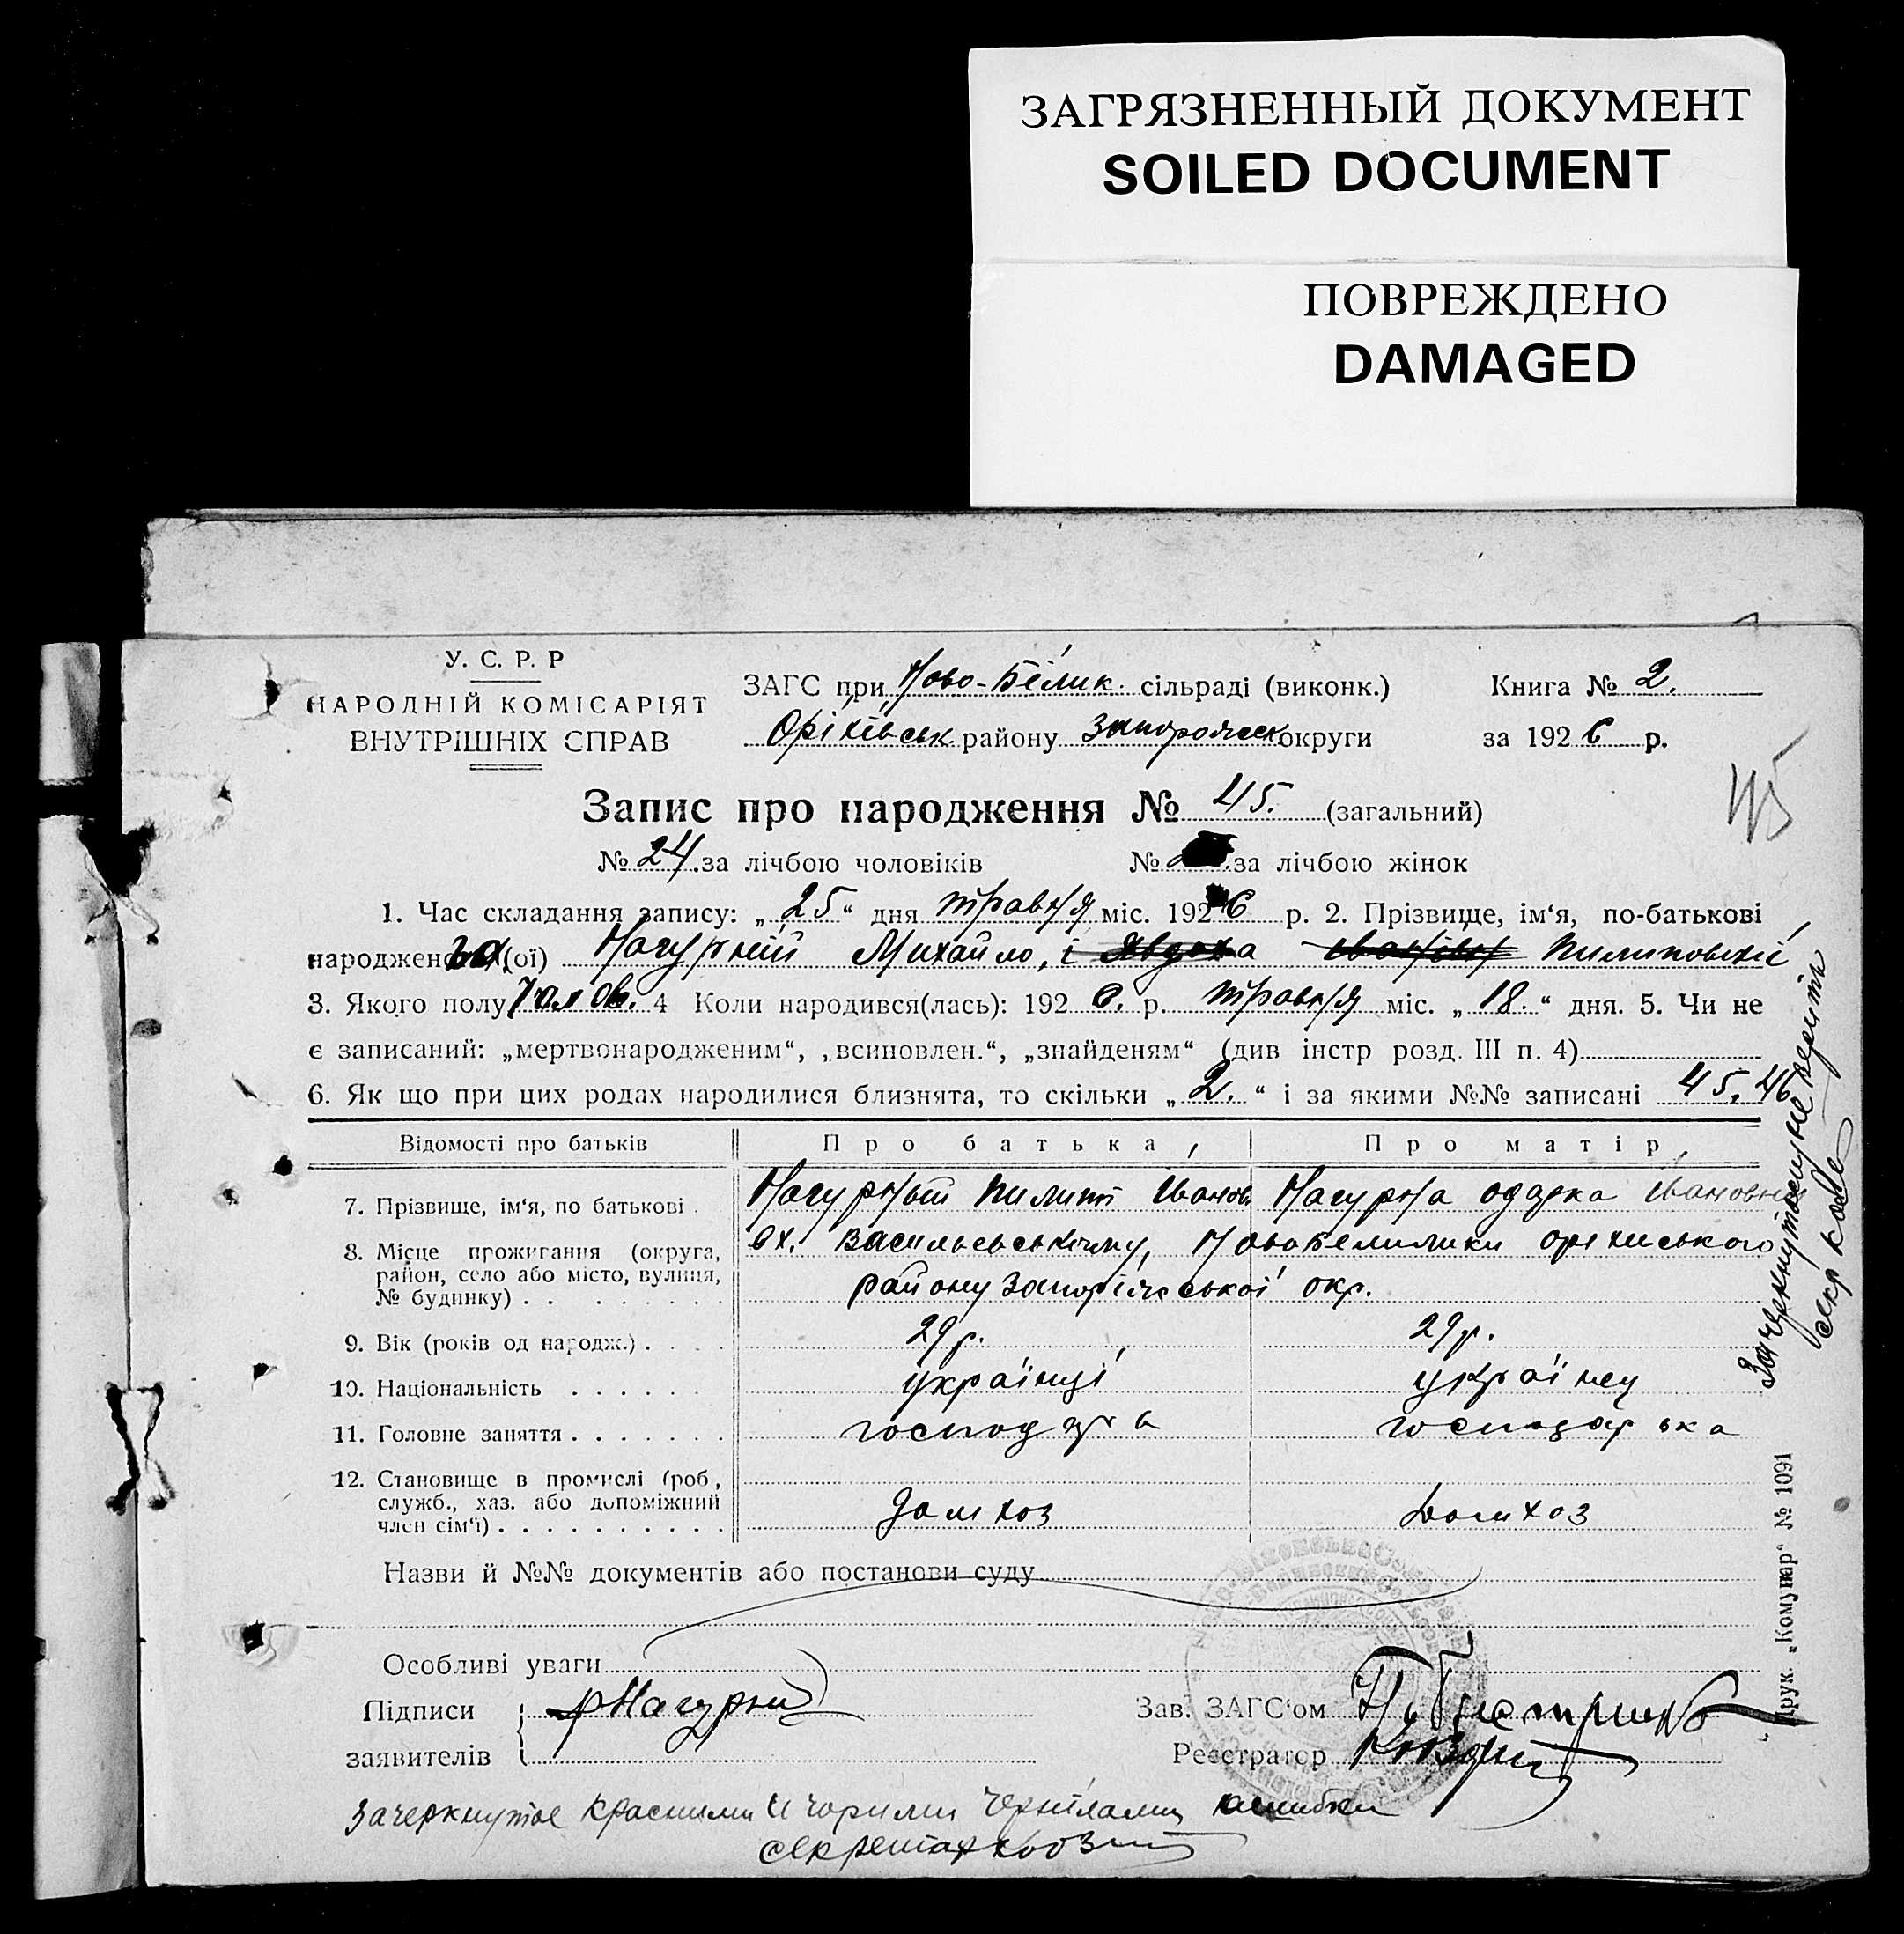 ЗАГРЯЗНЕННЫЙ ДОКУМЕНТ
SOILED DOCUMENT
ПОВРЕЖДЕНО
DAMAGED
У. С. Р. Р
НАРОДНІЙ КОМІСАРІЯТ
ВНУТРІШНІХ СПРАВ
ЗАГС при Ново-Білик. сільраді (виконк.)
Оріхівськ району Запорожськ округи
Книга № 2.
за 1926 р.
Запис про народження № 45. (загальний)
45
№ 24. за лічбою чоловіків № за лічбою жінок
1. Час складання запису: „25“ дня травня міс. 1926 р. 2. Прізвище, ім‘я, по-батькові
народженого(ої) Нагурний Михайло, і Явдоха Пилиповичі
3. Якого полу Чолов. 4 Коли народився(лась): 1926. р. травня міс. „18.“ дня. 5. Чи не
є записаний: „мертвонародженим“, „всиновлен.“, „знайденям“ (див інстр розд. III п. 4)
6. Як що при цих родах народилися близнята, то скільки „2.“ і за якими №№ записані 45. 46
Відомості про батьків Про батька Про матір
7. Прізвище, ім‘я, по батькові Нагурный Пилип Іванов Нагурна Одарка Івановна
8. Місце прожигання (округа,
район, село або місто, вулиця,
№ будинку)
району Запоріжської окр.
9. Вік (років од народж.) 29 р. 29 р.
10. Національність українці українец
11. Головне заняття господарка
12. Становище в промислі (роб,
служб., хаз. або допоміжний
член сім‘ї) домхоз домхоз
Назви й №№ документів або постанови суду
Особливі уваги
Підписи
заявителів
Нагурний
Зав. ЗАГС‘ом
Реєстратор
Зачеркнутое красними и чорними чернілами
секретар
Зачеркнутому не верить
секр
Друк. „Комунар“ № 1091